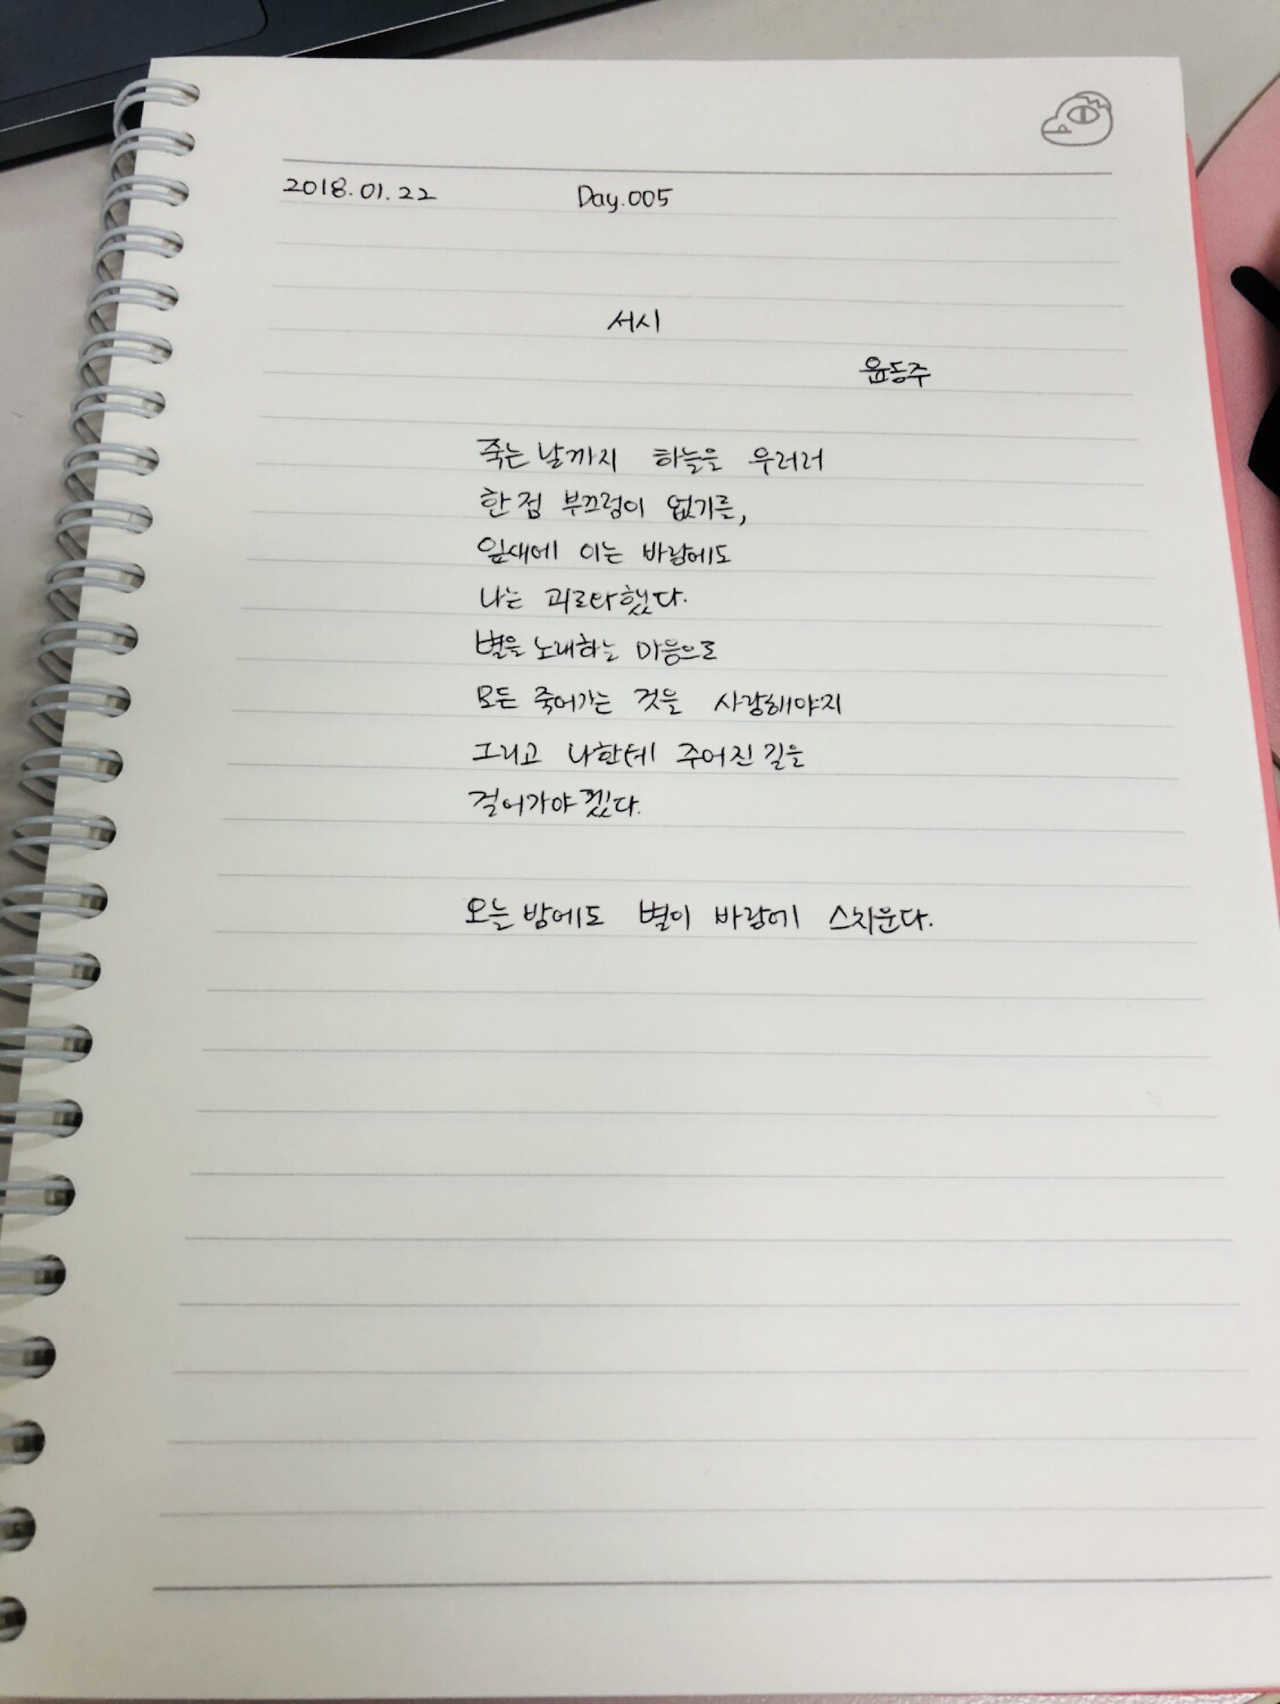 2018.01.22 Day.005
서시
윤동주
죽는 날까지 하늘을 우러러
한 점 부끄럼이 없기를,
잎새에 이는 바람에도
나는 괴로와했다.
별을 노래하는 마음으로
모든 죽어가는 것을 사랑해야지
그리고 나한테 주어진 길을
걸어가야겠다.
오늘 밤에도 별이 바람에 스치운다.